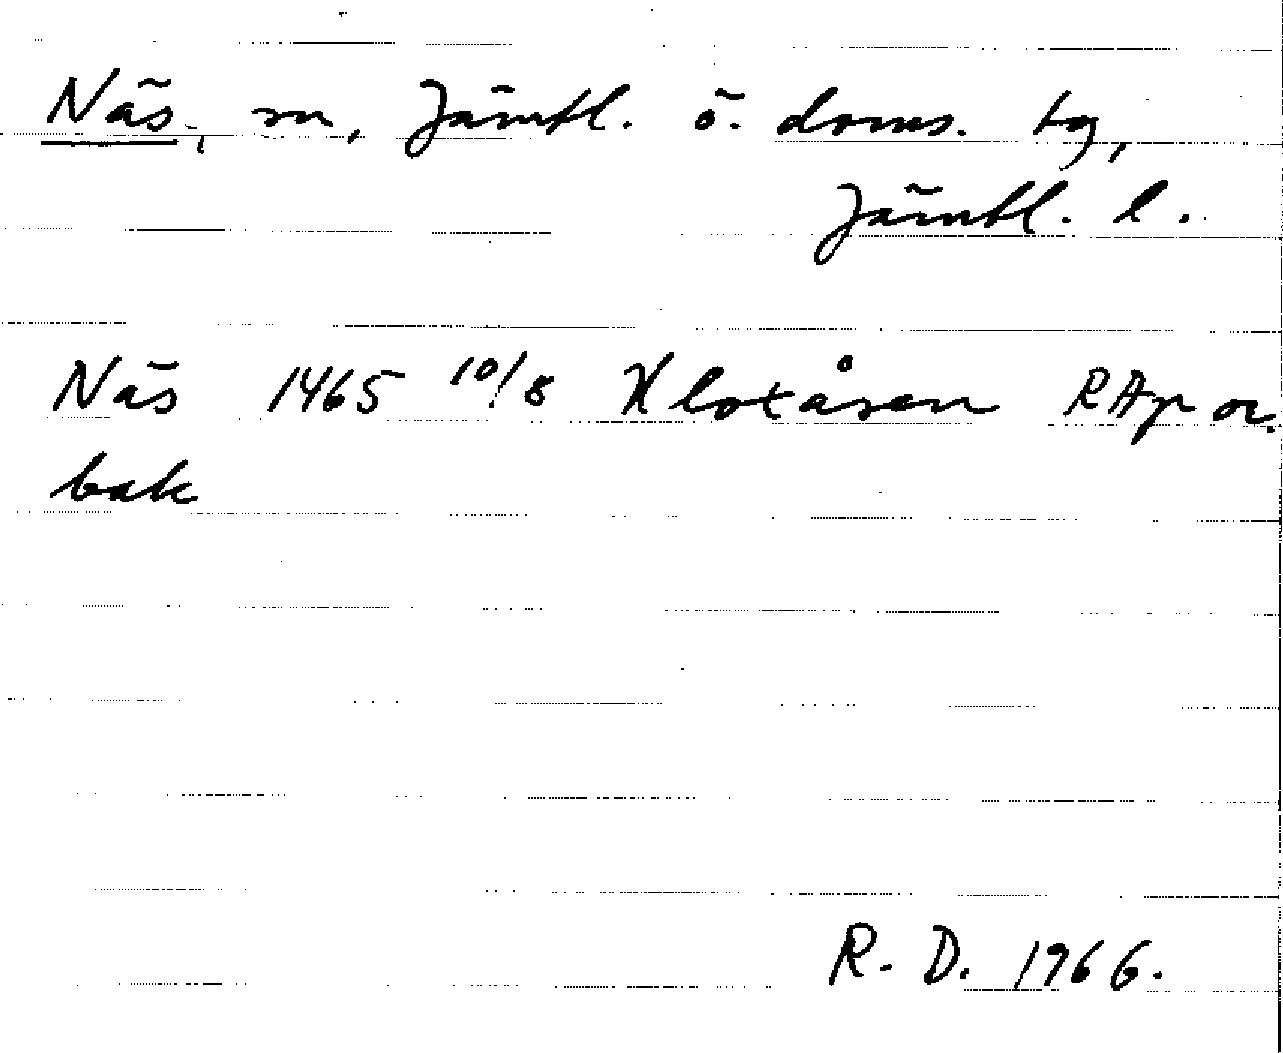 Näs, sn, Jämtl. ö. doms. tg,
Jämtl. l.
Näs 1465 10/8 Kloxåsen RAp or.
bak
R. D. 1966.